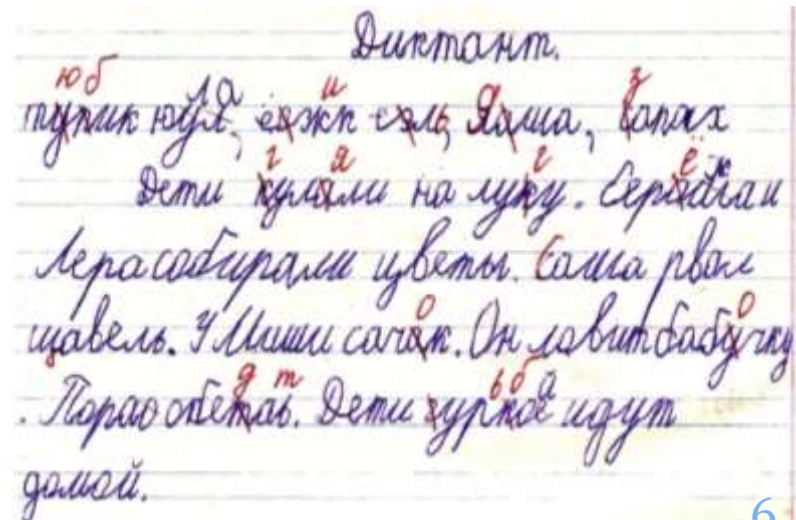 Диктант.
тупик юул, ежжк сяль, Яаша, сапах
Дети кулали на луку. Серожа и
Лера собирали цветы. Саша рвал
щавель. У Миши сачак. Он ловит бабучку
. Пора обетаь. Дети гуркое идут
домой.
6